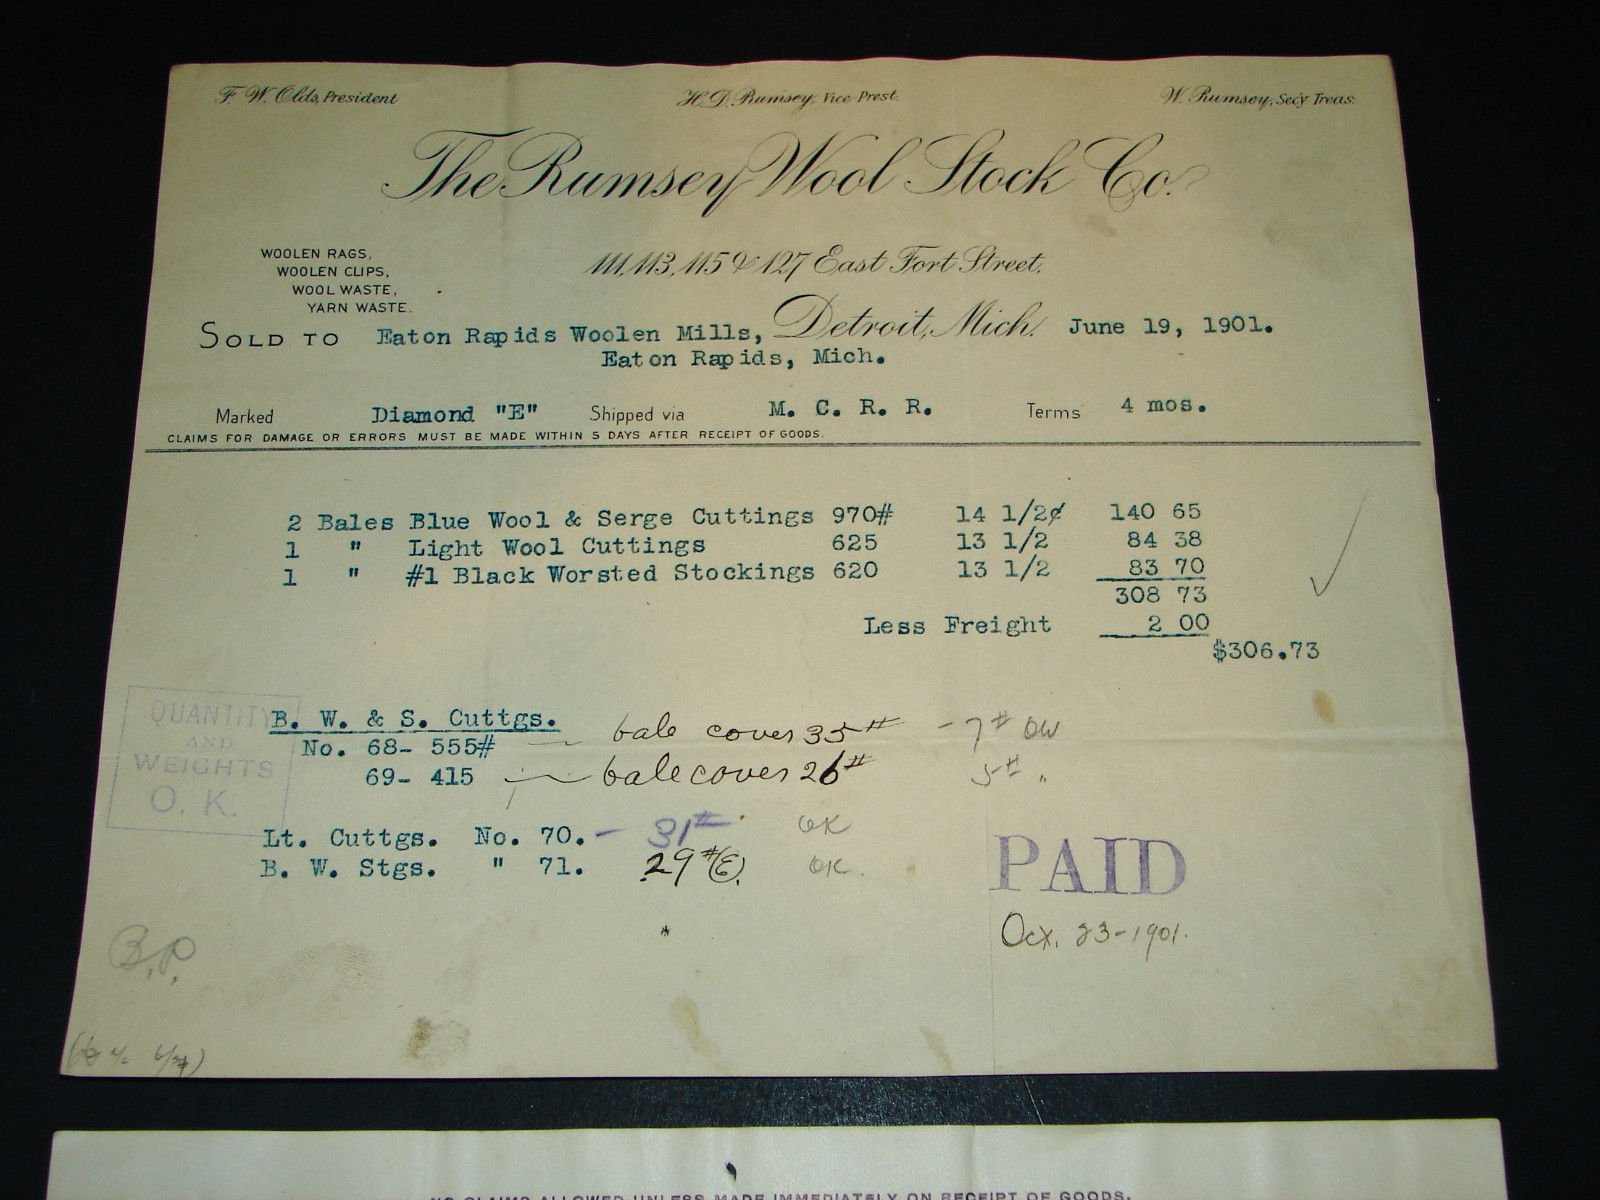 F. W. Olds, President H. D. Rumsey, Vice Prest. W. Rumsey, Sec'y Treas.
The Rumsey Wool Stock Co.
WOOLEN RAGS,
WOOLEN CLIPS,
WOOL WASTE,
YARN WASTE.
111, 113, 115 & 127 East Fort Street,
Detroit, Mich. June 19, 1901.
SOLD TO Eaton Rapids Woolen Mills,
Eaton Rapids, Mich.
Marked Diamond "E" Shipped via M. C. R. R. Terms 4 mos.
CLAIMS FOR DAMAGE OR ERRORS MUST BE MADE WITHIN 5 DAYS AFTER RECEIPT OF GOODS.
2 Bales Blue Wool & Serge Cuttings 970# 14 1/2¢ 140 65
1 " Light Wool Cuttings 625 13 1/2 84 38
1 " #1 Black Worsted Stockings 620 13 1/2 83 70
308 73
Less Freight 2 00
$306.73
QUANTITY
AND
WEIGHTS
O. K.
B. W. & S. Cuttgs.
No. 68- 555# bale cover 35# - 7# OW
69- 415 bale cover 26# 5# "
Lt. Cuttgs. No. 70. - 31# OK
B. W. Stgs. " 71. 29# OK.
PAID
Oct. 23-1901.
B.P.
NO CLAIMS ALLOWED UNLESS MADE IMMEDIATELY ON RECEIPT OF GOODS.